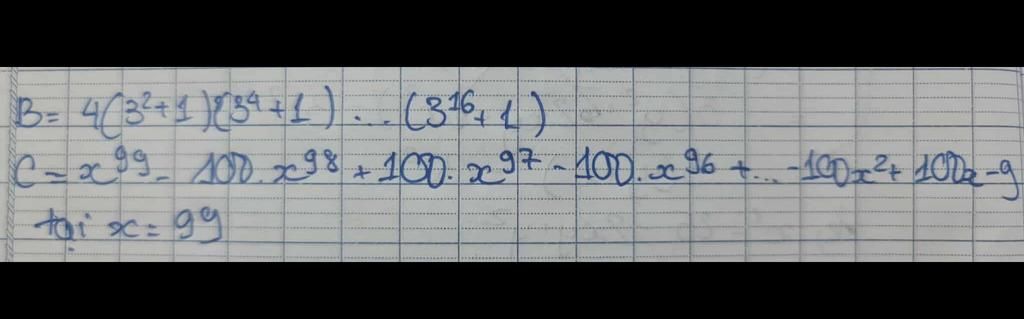 B = 4(3²+1)(3⁴+1) ... (3¹⁶+1)
C = x⁹⁹ - 100.x⁹⁸ + 100.x⁹⁷ - 100.x⁹⁶ + ... -100x² + 100x - 9
tại x = 99